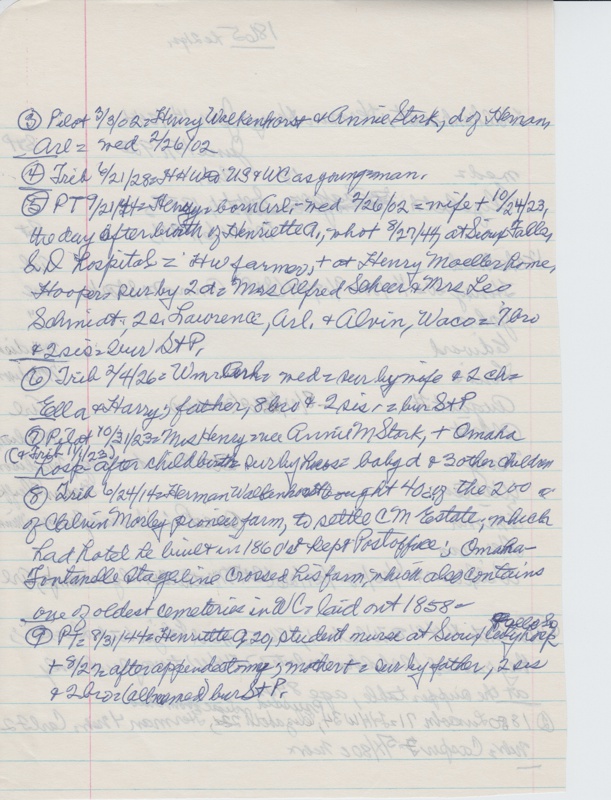 ③ Pilot 3/3/02 = Henry Walkenhorst & Annie Stork, d of Heman,
Arl = wed 2/26/02
④ Trib 6/21/28 = HHW to US & WC as young man.
⑤ PT 9/21/44 = Henry = born Arl, - wed 2/26/02 = wife + 10/24/23,
the day after birth of Henrietta A, who + 8/27/44, at Sioux Falls,
S.D. hospital = HW farmer, + at Henry Moeller home,
Hooper, sur by 2 d = Mrs Alfred Scheer & Mrs Leo
Schmidt, 2 s. Lawrence, Arl. & Alvin, Waco = 7 bro
& 2 sis = bur St P.
⑥ Trib 2/4/26 = Wm Arl = wed = sur by wife & 2 ch =
Ella & Harry; father, 8 bro & 2 sis, = bur St P
⑦ Pilot 10/31/23 = Mrs Henry = nee Annie M Stork, + Omaha
(& Trib 11/1/23)
hosp after childbirth sur by hus = baby d & 3 other children
⑧ Trib 6/24/14 = Herman Walkenhorst bought 40 of the 200 a
of Calvin Morley pioneer farm, to settle CM Estate, which
had hotel he built in 1860's & kept Postoffice; Omaha-
Fontanelle stageline crossed his farm, which also contains
one of oldest cemeteries in WC = laid out 1858 =
⑨ PT = 8/31/44 = Henriette A, 20, student nurse at Sioux City hosp
Falls So
+ 8/2 after appendectomy; mother + = sur by father, 2 sis
& 2 bro = (all named) bur St P.